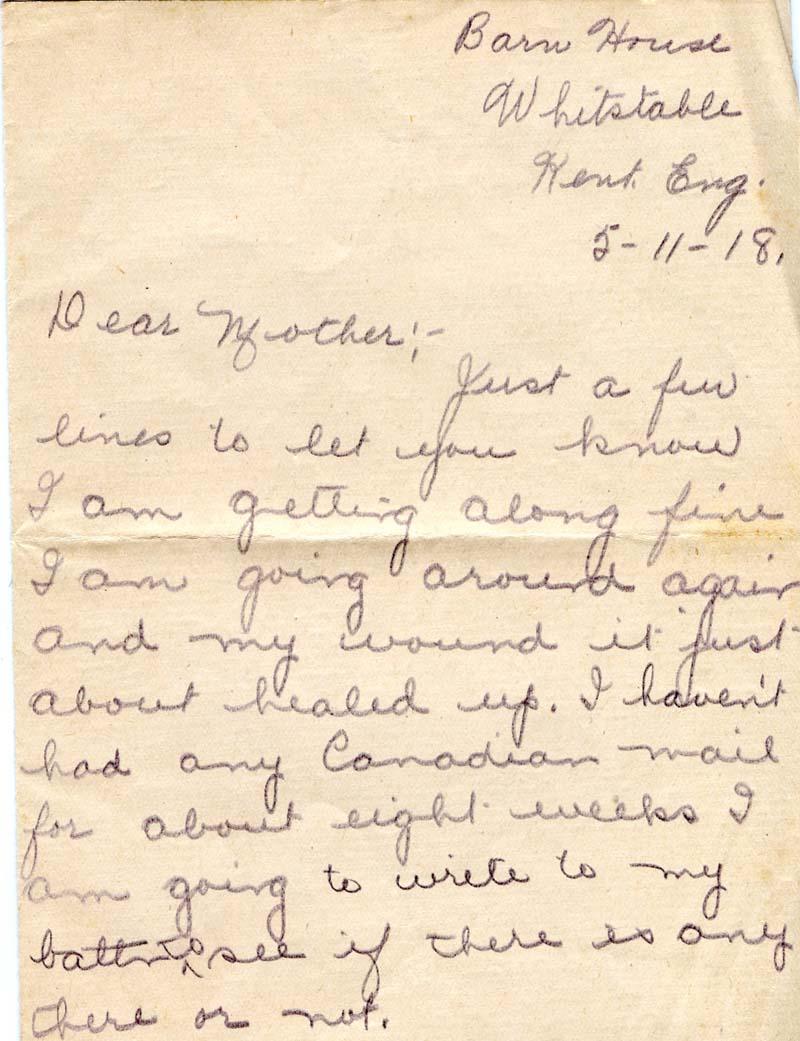 Barn House
Whitstable
Kent. Eng.
5-11-18.
Dear Mother:-
Just a few
lines to let you know
I am getting along fine
I am going around again
and my wound it just
about healed up. I haven't
had any Canadian mail
for about eight weeks I
am going to write to my
battn to see if there is any
there or not.